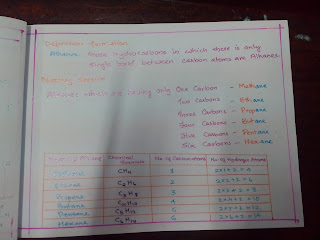 Alkanes: Those hydrocarbons in which there is only
single bond between carbon atoms are Alkanes.
Alkanes which are having only One Carbon - Methane
Two Carbons - Ethane
Three Carbons - Propane
Four Carbons - Butane
Five Carbons - Pentane
Six Carbons - Hexane
Chemical Formula No of Carbon atoms No. of Hydrogen Atoms
Methane CH4 1 2×1+2=4
Ethane C2H6 2 2×2+2=6
Propane C3H8 3 2×3+2=8
Butane C4H10 4 2×4+2=10
Pentane C5H12 5 2×5+2=12
Hexane C6H14 6 2×6+2=14